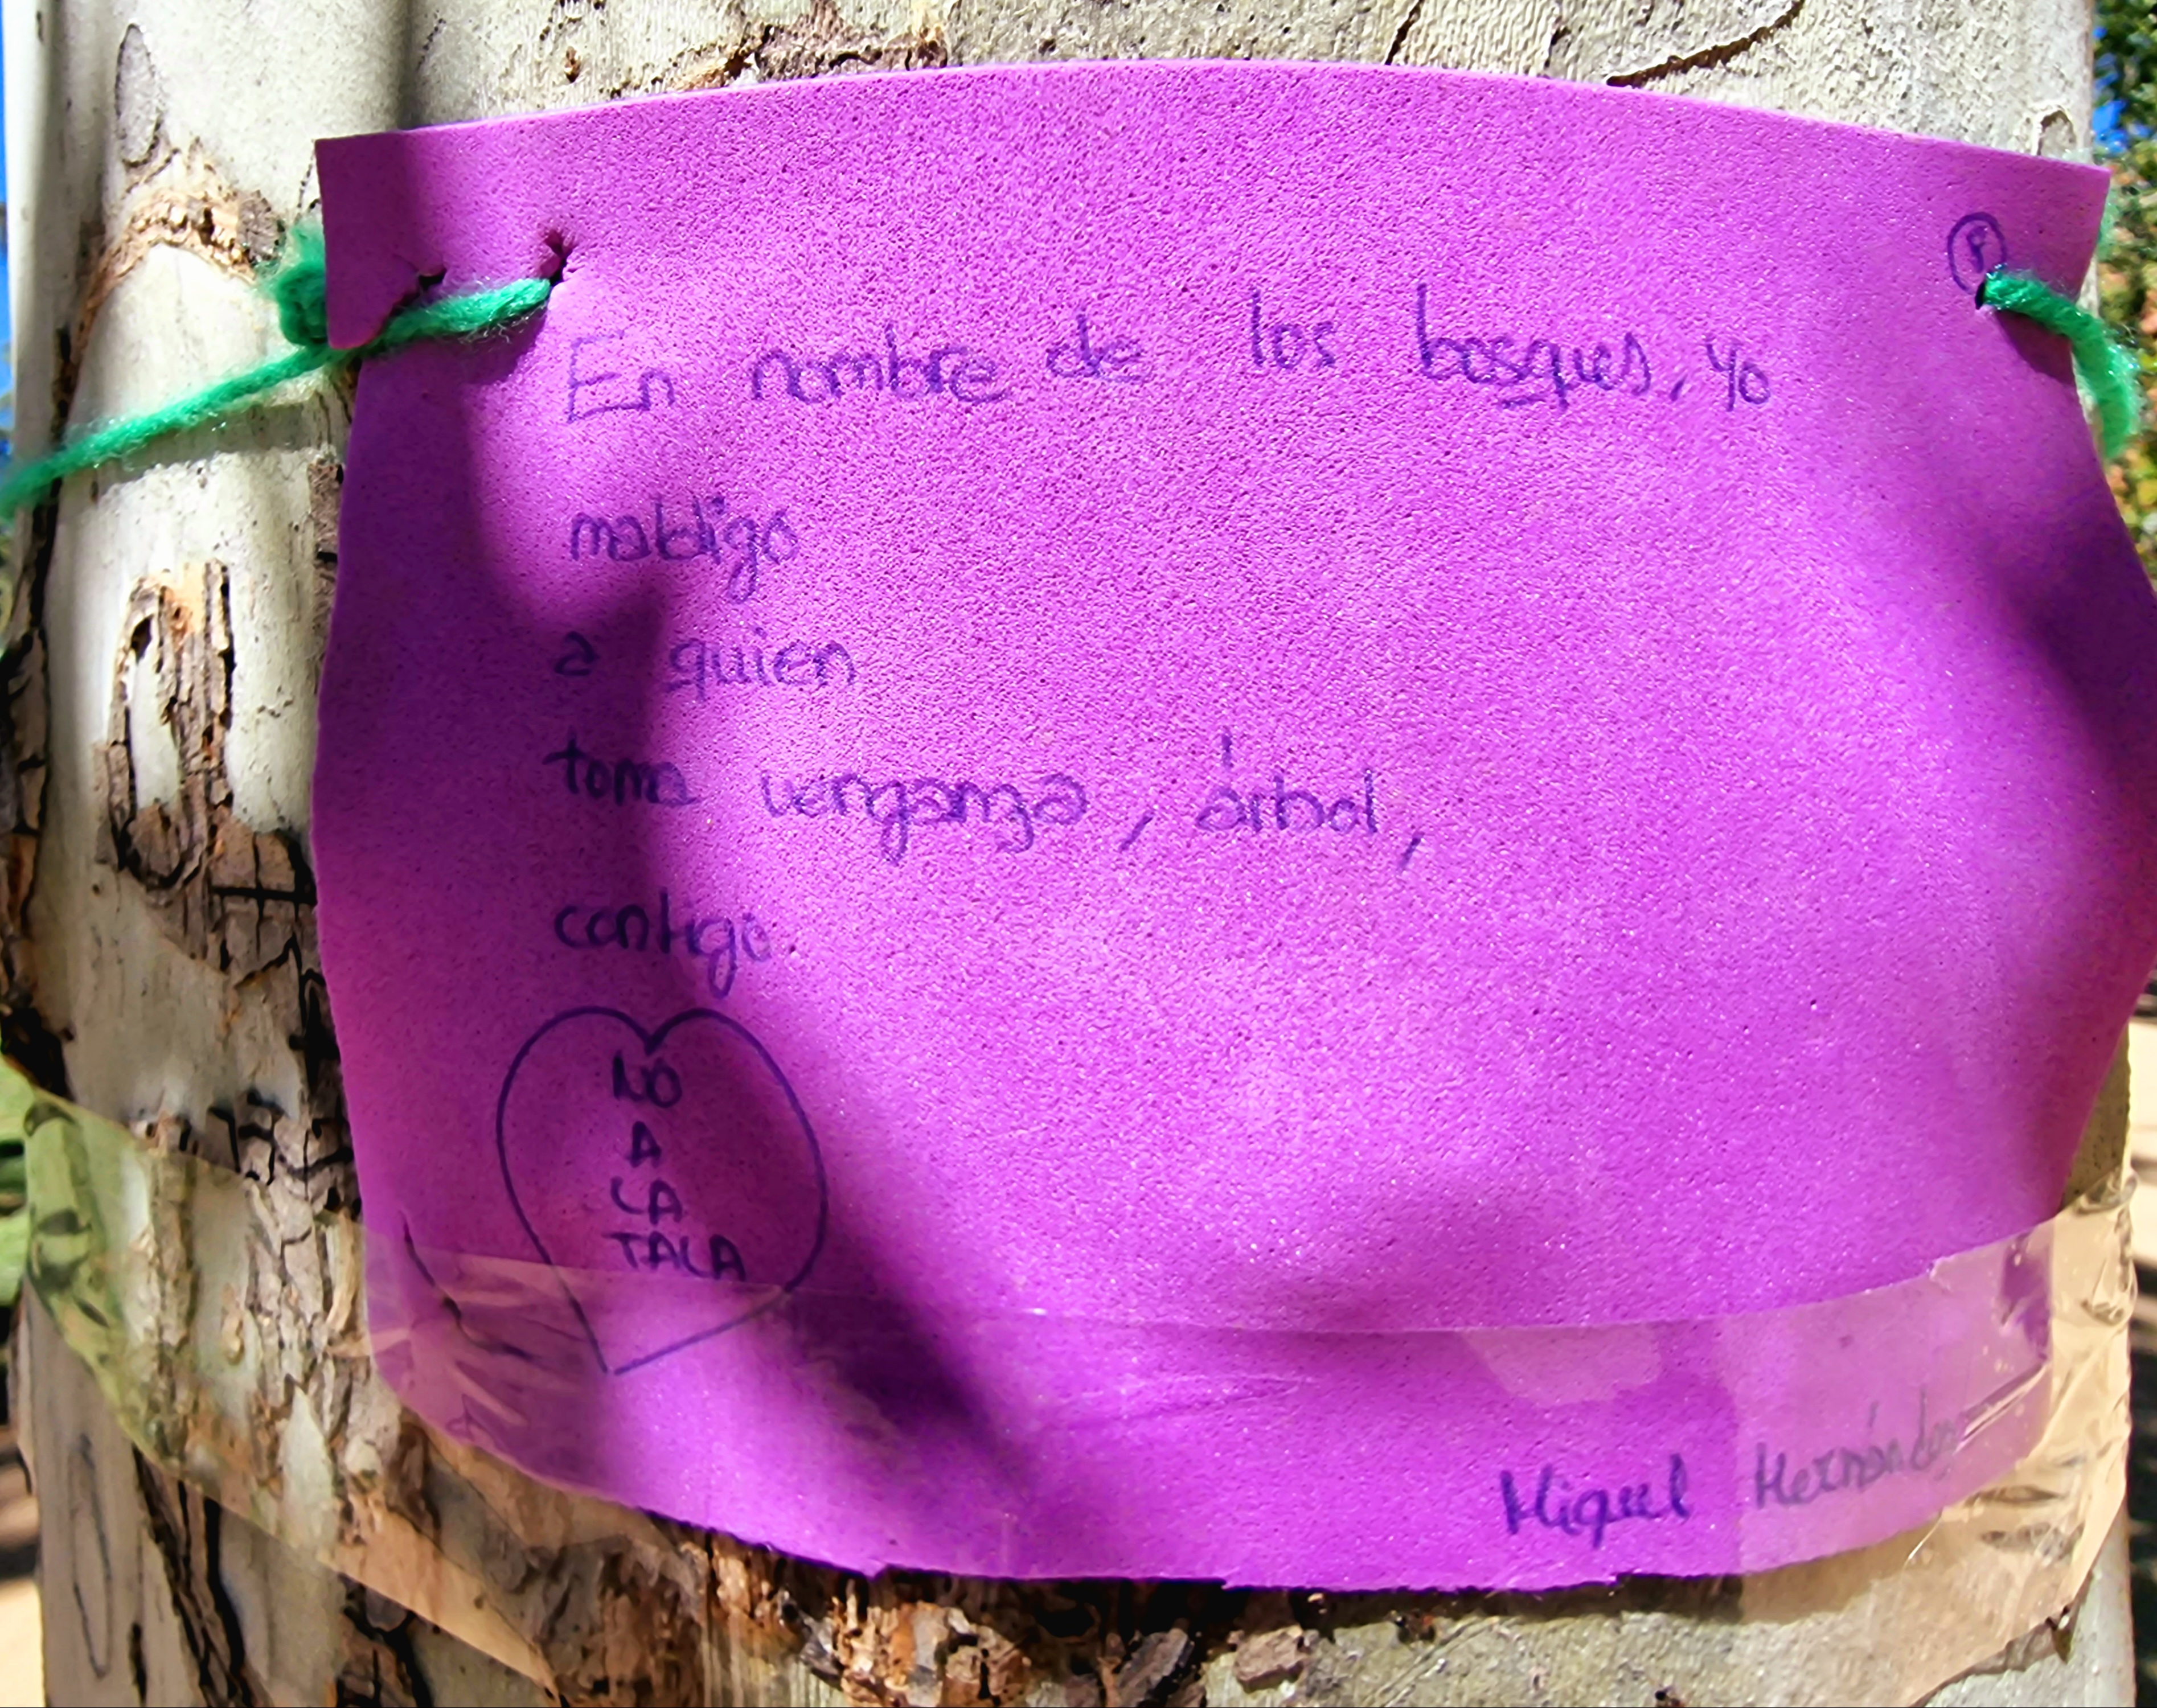 En nombre de los bosques, yo
maldigo
a quien
toma venganza, árbol,
contigo
NO
A
LA
TALA
Miguel Hernández